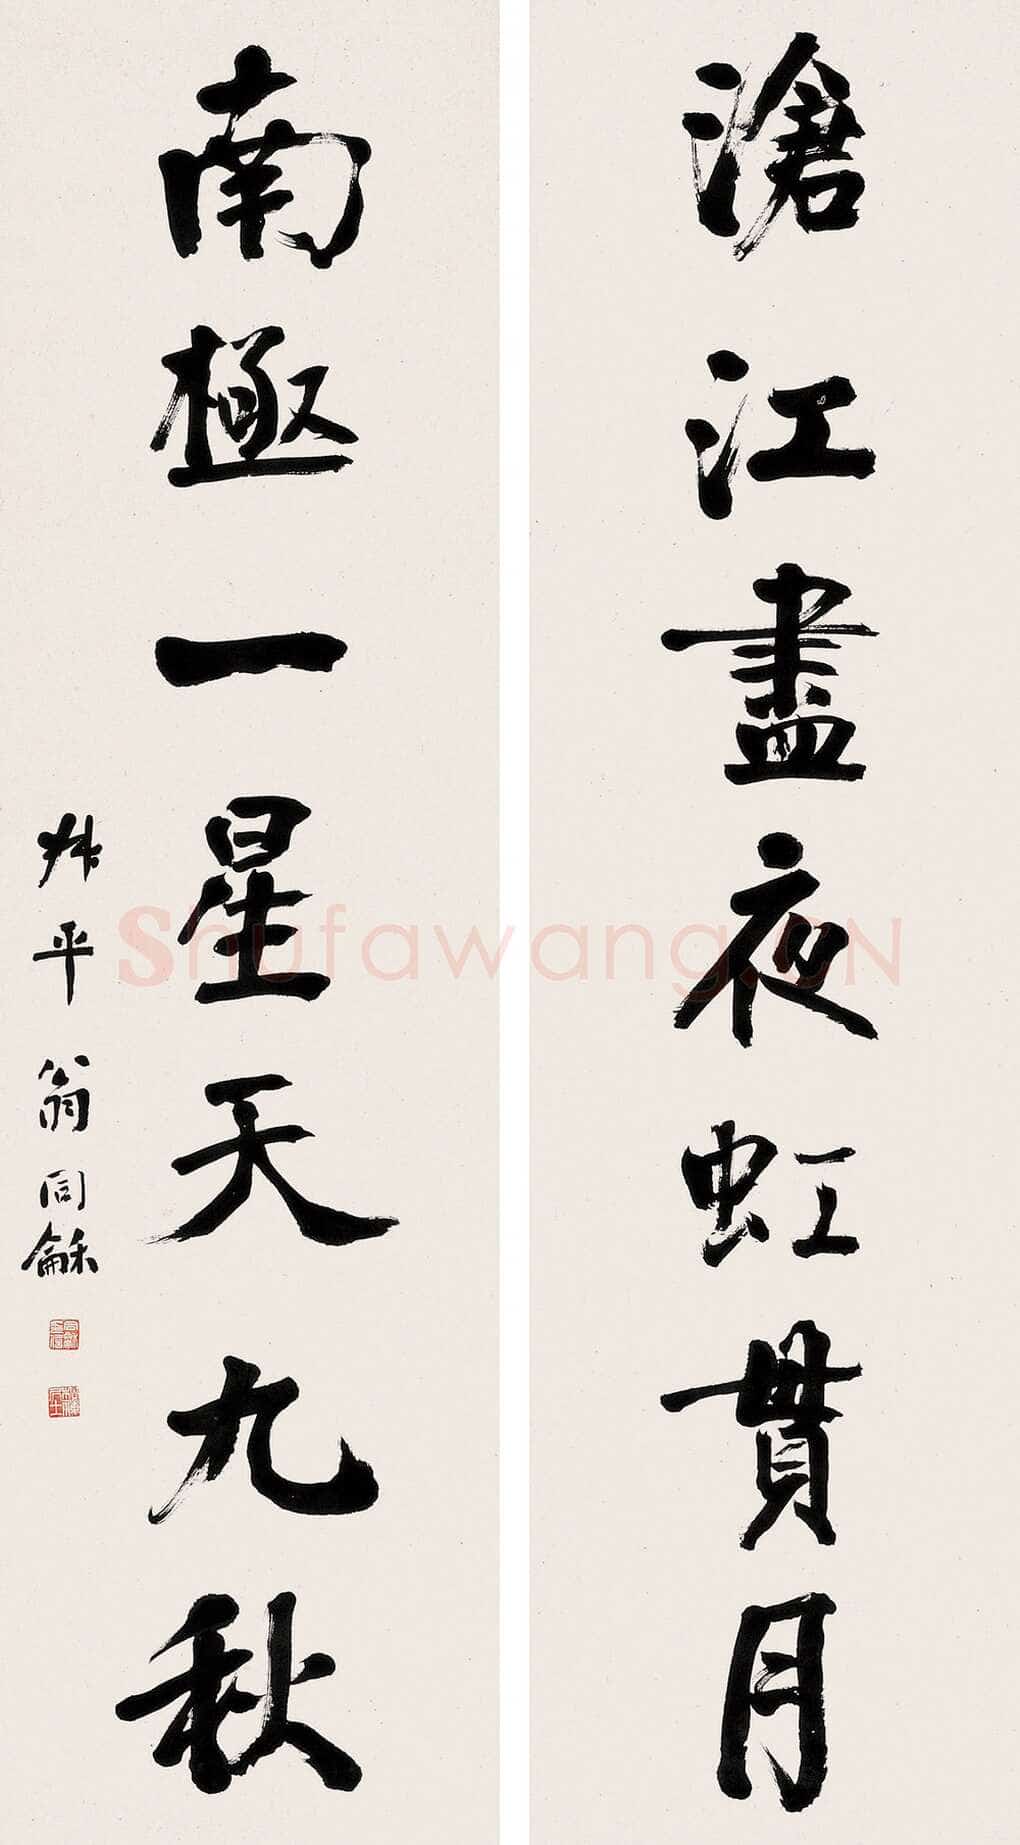 滄江盡夜虹貫月
南極一星天九秋
叔平翁同龢
Shufawang.CN